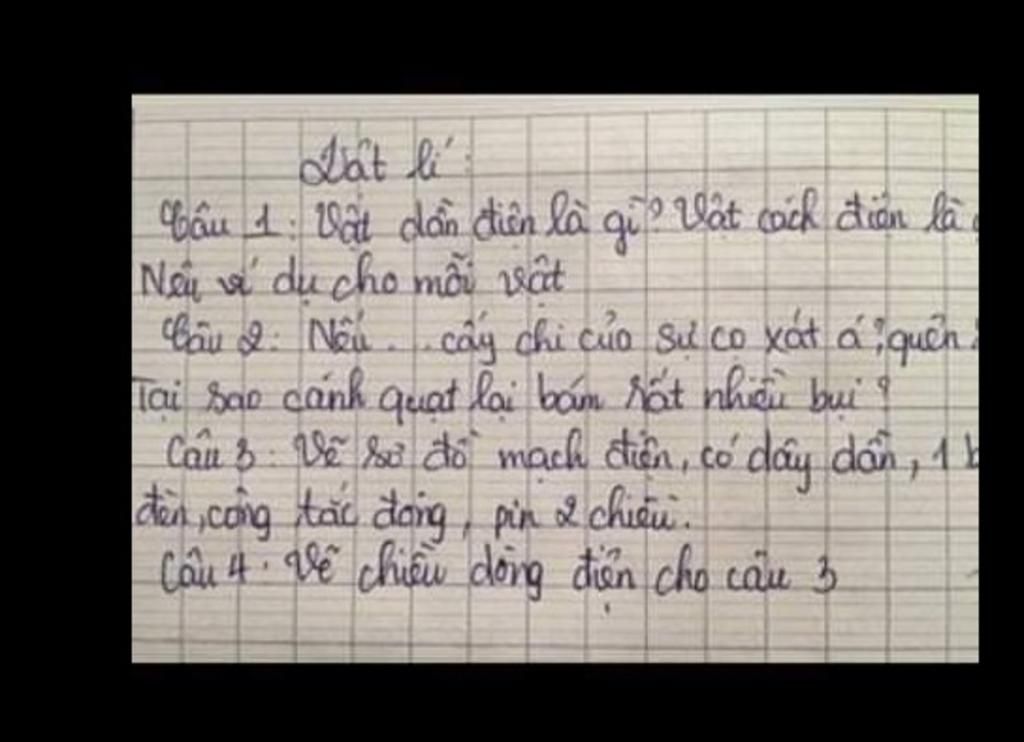 Vật lí:
Câu 1: Vật dẫn điện là gì? Vật cách điện là
Nêu ví dụ cho mỗi vật
Câu 2: Nếu... cấy chi của sự cọ xát á, quên
Tại sao cánh quạt lại bám rất nhiều bụi?
Câu 3: Vẽ sơ đồ mạch điện, có dây dẫn, 1
đèn, công tắc đóng, pin 2 chiều.
Câu 4. Vẽ chiều dòng điện cho câu 3